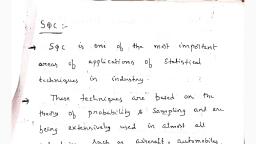 SQC :-
→ SQC is one of the most important
areas of applications of statistical
techniques in industry.
→ These techniques are based on the
theory of probability & sampling and are
being extensively used in almost all
such as aircraft, automobiles,